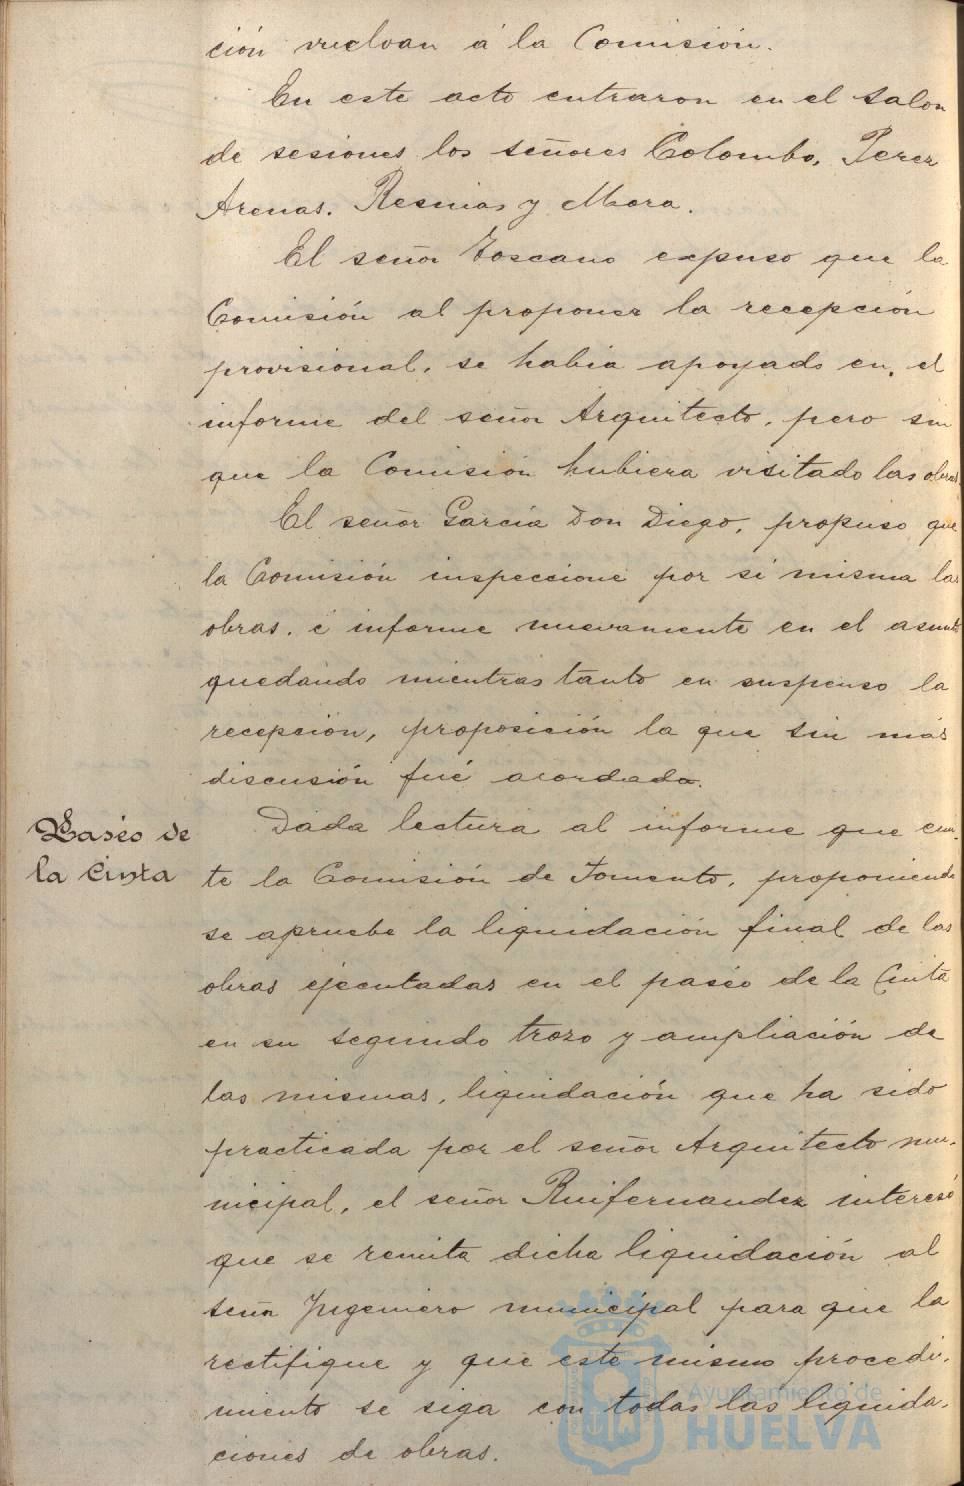 ción vuelvan á la Comisión.
En este acto entraron en el salon
de sesiones los señores Colombo, Perez
Arenas. Resmias y Mora.
El señor Toscano expuso que la
Comisión al proponer la recepción
provisional, se habia apoyado en, el
informe del señor Arquitecto, pero sin
que la Comisión hubiera visitado las obras
El señor García Don Diego, propuso que
la Comisión inspeccione por sí misma las
obras. é informe nuevamente en el asunto
quedando mientras tanto en suspenso la
recepción, proposición la que sin más
discusión fué acordada.
Paséo de
la Cinta
Dada lectura al informe que emi-
te la Comisión de Fomento, proponiendo
se apruebe la liquidación final de las
obras ejecutadas en el paséo de la Cinta
en su segundo trozo y ampliación de
las mismas, liquidación que ha sido
practicada por el señor Arquitecto mu-
nicipal, el señor Ruifernandez interesó
que se remita dicha liquidación al
señor Ingeniero municipal para que la
rectifique y que este mismo procedi-
miento se siga con todas las liquida-
ciones de obras.
Ayuntamiento de
HUELVA